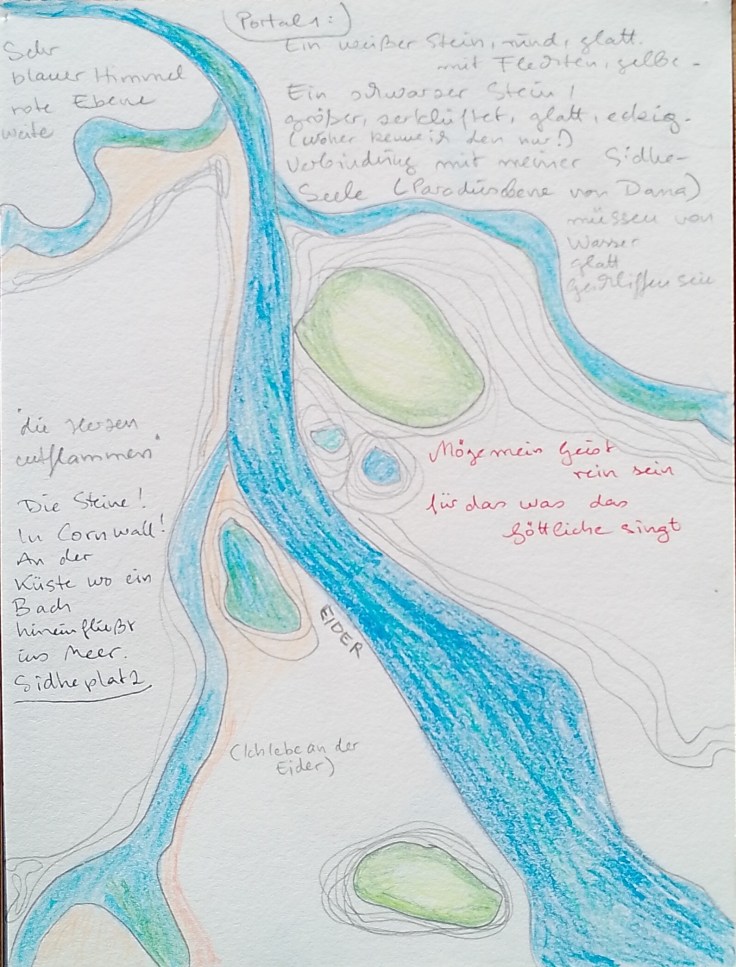 (Portal 1:)
Ein weißer Stein, rund, glatt.
mit Flechten, gelbe -
Ein schwarzer Stein,
größer, zerklüftet, glatt, eckig.
(woher kenne ich den nur?)
Verbindung mit meiner Sidhe-
Seele (Paradiesebene von Dana)
müssen von
Wasser
glatt
geschliffen sein
Sehr
blauer Himmel
rote Ebene
weite
"die Herzen
entflammen"
Die Steine!
In Cornwall!
An der
Küste wo ein
Bach
hineinfließt
ins Meer.
Sidheplatz
Möge mein Geist
rein sein
für das was das
Göttliche singt
EIDER
(Ich lebe an der
Eider)